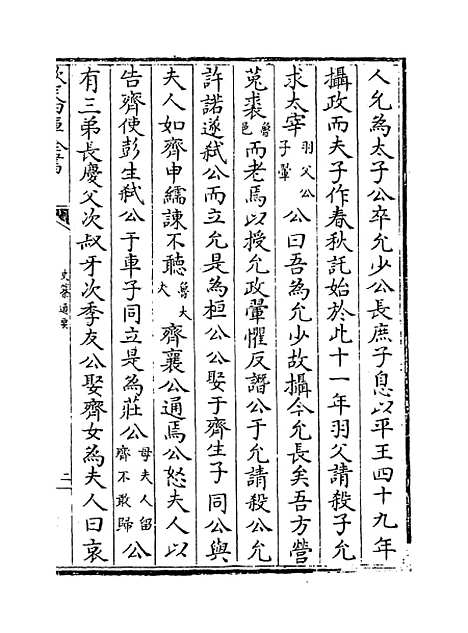 人允為太子公卒允少公長庶子息以平王四十九年
攝政而夫子作春秋託始於此十一年羽父請殺子允
求太宰羽父公子翬公曰吾為允少故攝今允長矣吾方營
菟裘魯邑而老焉以授允政翬懼反譖公于允請殺公允
許諾遂弒公而立允是為桓公公娶于齊生子同公與
夫人如齊申繻諫不聽魯大夫齊襄公通焉公怒夫人以
告齊使彭生弒公于車子同立是為莊公母夫人留齊不敢歸公
有三弟長慶父次叔牙次季友公娶齊女為夫人曰哀
史纂通要
二